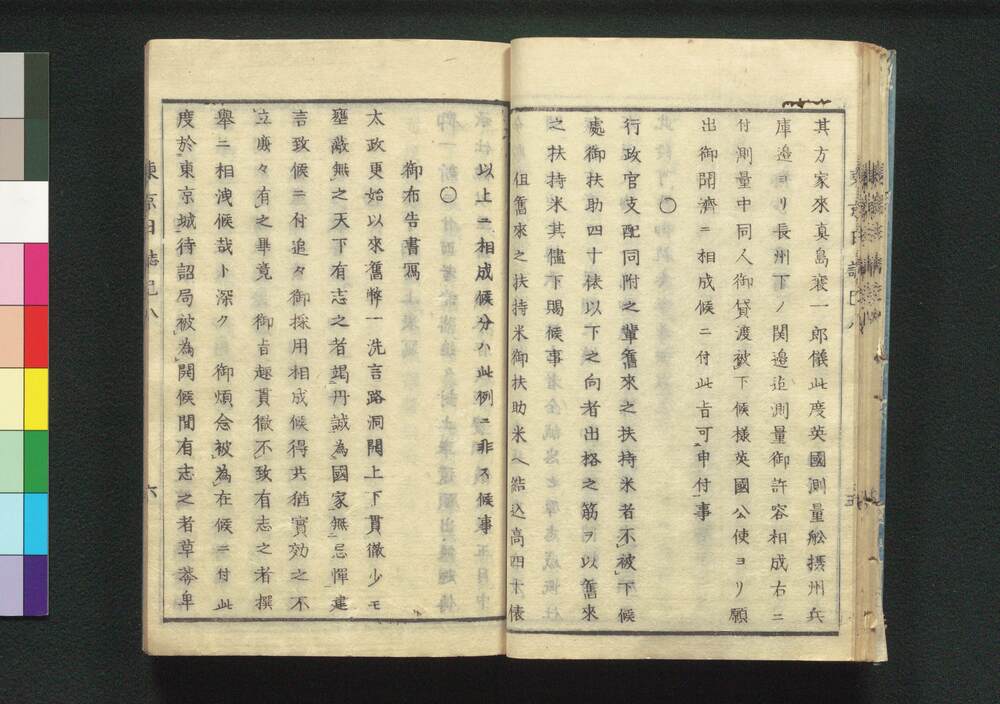 其方家來真島襄一郎儀此度英國測量舩摂州兵
庫邉ヨリ長州下ノ関邉迠測量御許容相成右ニ
付測量中同人御貸渡被下候樣英國公使ヨリ願
出御聞濟ニ相成候ニ付此旨可申付事
〇
行政官支配同附之輩舊來之扶持米者不被下候
處御扶助四十俵以下之向者出格之筋ヲ以舊來
之扶持米其儘下賜候事
但舊來之扶持米御扶助米ヘ結込高四十俵
以上ニ相成候分ハ此例ニ非ル候事
〇
御布告書寫
太政更始以來舊弊一洗言路洞開上下貫徹少モ
壅蔽無之天下有志之者竭丹誠為國家無忌憚建
言致候ニ付追々御採用相成候得共猶實効之不
立廉々有之畢竟御旨趣貫徹不致有志之者撰
舉ニ相洩候哉ト深ク御煩念被為在候ニ付此
度於東京城待詔局被為開候間有志之者草莽卑
東京日誌巳八
六